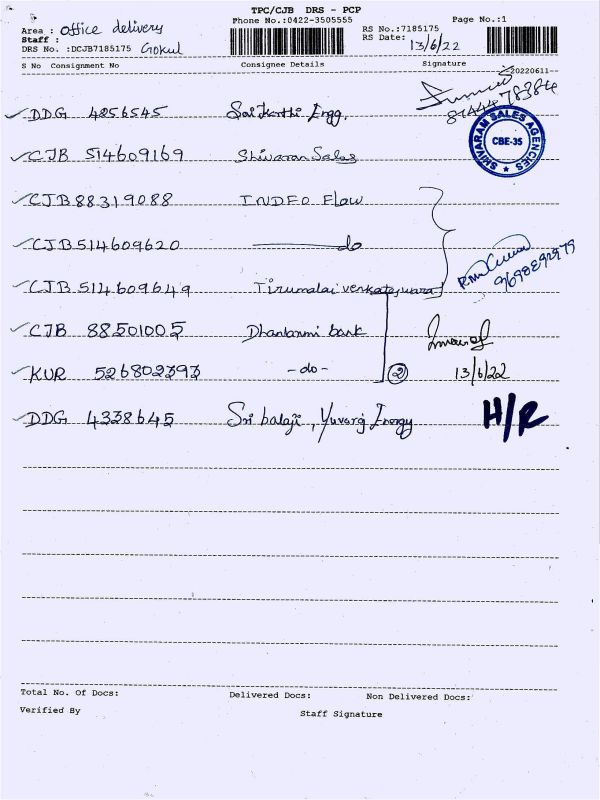 TPC/CJB DRS - PCP
Area : office delivery
Phone No.:0422-3505555
RS No.:7185175
Page No.:1
Staff :
RS Date: 13/6/22
DRS No. :DCJB7185175 Gokul
S No Consignment No Consignee Details Signature
20220611
DDG 4256545 Engg.
CJB 514609169 Shivaram Sales
SHIVARAM SALES AGENCIES
CBE-35
CJB 88319088 INDFO Flow
CJB 514609620 do
CJB 514609649 Tirumalai venkateswara
CJB 88501005 Dhanlaxmi bank
KUR 526802393 - do - 2 13/6/22
DDG 4338645 Sri balaji, Energy H/R
Total No. Of Docs: Delivered Docs: Non Delivered Docs:
Verified By Staff Signature